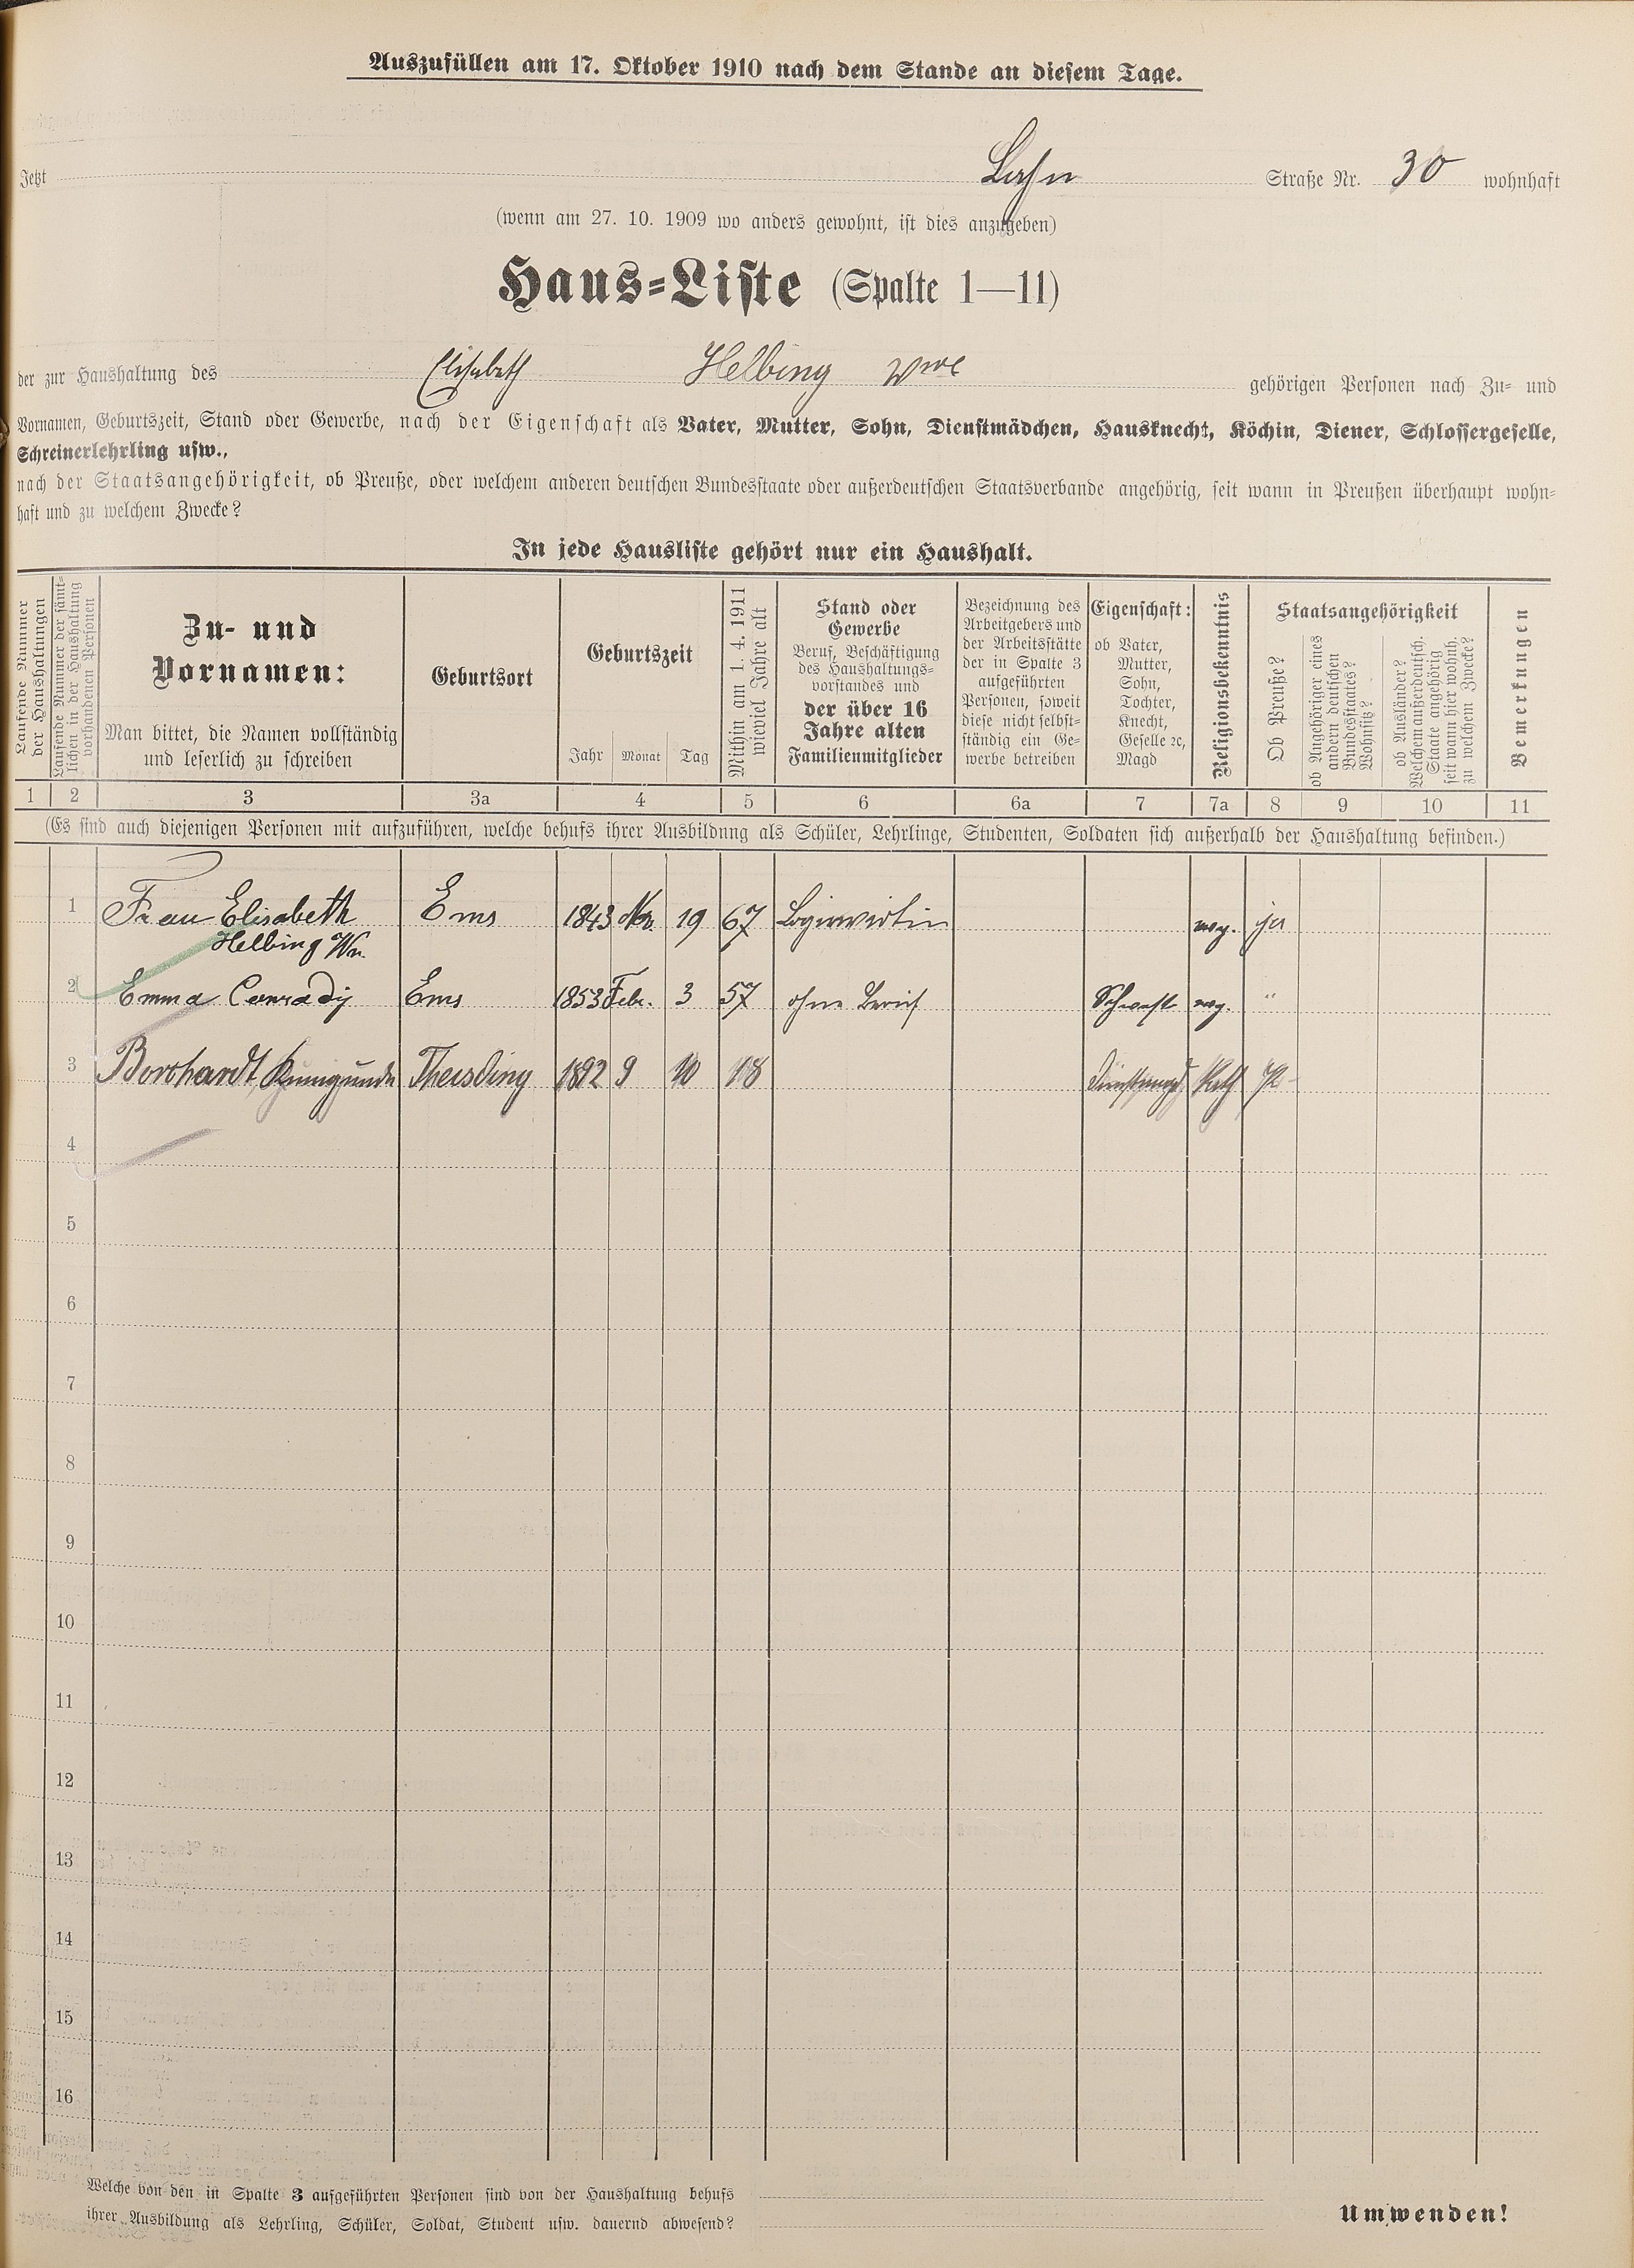 Auszufüllen am 17. Oktober 1910 nach dem Stande an diesem Tage.
Jetzt Lahn Straße Nr. 30 wohnhaft
(wenn am 27. 10. 1909 wo anders gewohnt, ist dies anzugeben)
Haus-Liste (Spalte 1—11)
der zur Haushaltung des Elisabeth Helbing Wwe gehörigen Personen nach Zu- und
Vornamen, Geburtszeit, Stand oder Gewerbe, nach der Eigenschaft als Vater, Mutter, Sohn, Dienstmädchen, Hausknecht, Köchin, Diener, Schlossergeselle,
Schreinerlehrling usw.,
nach der Staatsangehörigkeit, ob Preuße, oder welchem anderen deutschen Bundesstaate oder außerdeutschen Staatsverbande angehörig, seit wann in Preußen überhaupt wohn-
haft und zu welchem Zwecke?
In jede Hausliste gehört nur ein Haushalt.
Laufende Nummer
der Haushaltungen
Laufende Nummer der sämt-
lichen in der Haushaltung
vorhandenen Personen
Zu- und
Vornamen:
Man bittet, die Namen vollständig
und leserlich zu schreiben
Geburtsort
Geburtszeit
Jahr Monat Tag
Mithin am 1. 4. 1911
wieviel Jahre alt
Stand oder
Gewerbe
Beruf, Beschäftigung
des Haushaltungs-
vorstandes und
der über 16
Jahre alten
Familienmitglieder
Bezeichnung des
Arbeitgebers und
der Arbeitsstätte
der in Spalte 3
aufgeführten
Personen, soweit
diese nicht selbst-
ständig ein Ge-
werbe betreiben
Eigenschaft:
ob Vater,
Mutter,
Sohn,
Tochter,
Knecht,
Geselle ꝛc,
Magd
Religionsbekenntnis
Staatsangehörigkeit
Ob Preuße?
ob Angehöriger eines
andern deutschen
Bundesstaates?
Wohnsitz?
ob Ausländer?
Welchem außerdeutsch.
Staate angehörig
seit wann hier wohnh.
zu welchem Zwecke?
Bemerkungen
1 2 3 3a 4 5 6 6a 7 7a 8 9 10 11
(Es sind auch diejenigen Personen mit aufzuführen, welche behufs ihrer Ausbildung als Schüler, Lehrlinge, Studenten, Soldaten sich außerhalb der Haushaltung befinden.)
1 Frau Elisabeth Ems 1843 Nov. 19 67 Logirwirtin evg. ja
Helbing Ww.
2 Emma Conrady Ems 1853 Febr. 3 57 ohne Beruf Schwest. evg. "
3 Kunigunde Theisding 1892 9 10 18 Dienstmagd Kath
4
5
6
7
8
9
10
11
12
13
14
15
16
Welche von den in Spalte 3 aufgeführten Personen sind von der Haushaltung behufs
ihrer Ausbildung als Lehrling, Schüler, Soldat, Student usw. dauernd abwesend?
Umwenden!